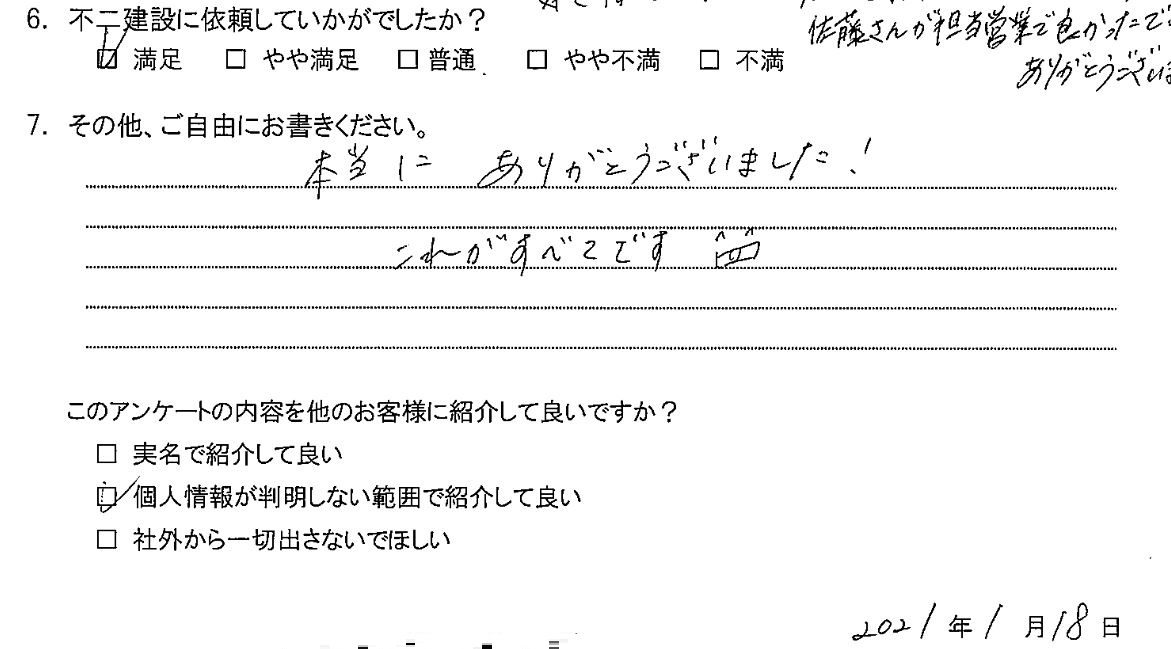 6. 不二建設に依頼していかがでしたか？
佐藤さんが担当営業で良かったで
ありがとうござい
☑ 満足 □ やや満足 □ 普通 □ やや不満 □ 不満
7. その他、ご自由にお書きください。
本当に ありがとうございました！
これがすべてです
このアンケートの内容を他のお客様に紹介して良いですか？
□ 実名で紹介して良い
☑ 個人情報が判明しない範囲で紹介して良い
□ 社外から一切出さないでほしい
2021年1月18日